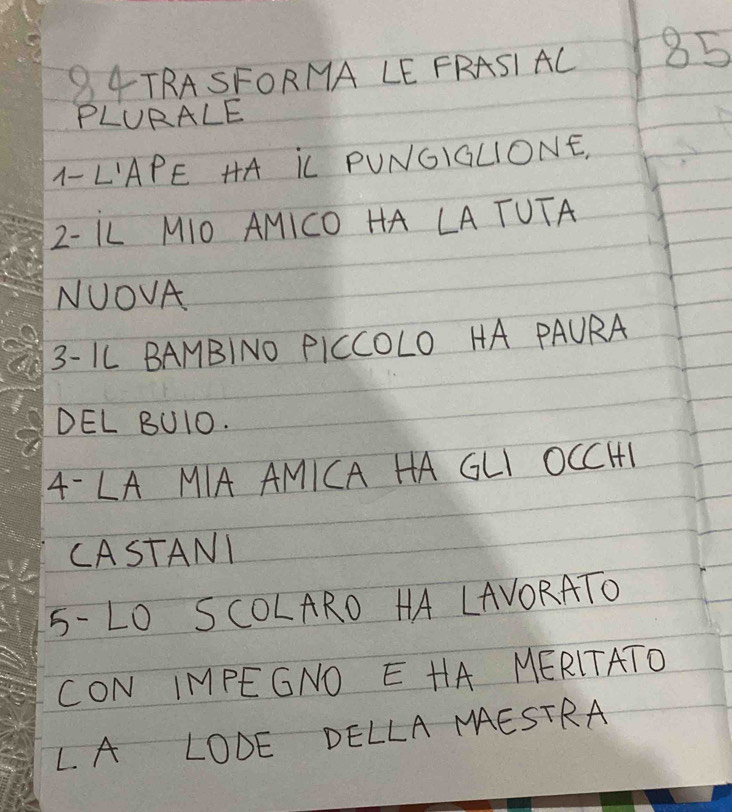 84 TRASFORMA LE FRASI AL 85
PLURALE
1- L'APE HA IL PUNGIGLIONE.
2- IL MIO AMICO HA LA TUTA
NUOVA
3- IL BAMBINO PICCOLO HA PAURA
DEL BUIO.
4- LA MIA AMICA HA GLI OCCHI
CASTANI
5- LO SCOLARO HA LAVORATO
CON IMPEGNO E HA MERITATO
LA LODE DELLA MAESTRA